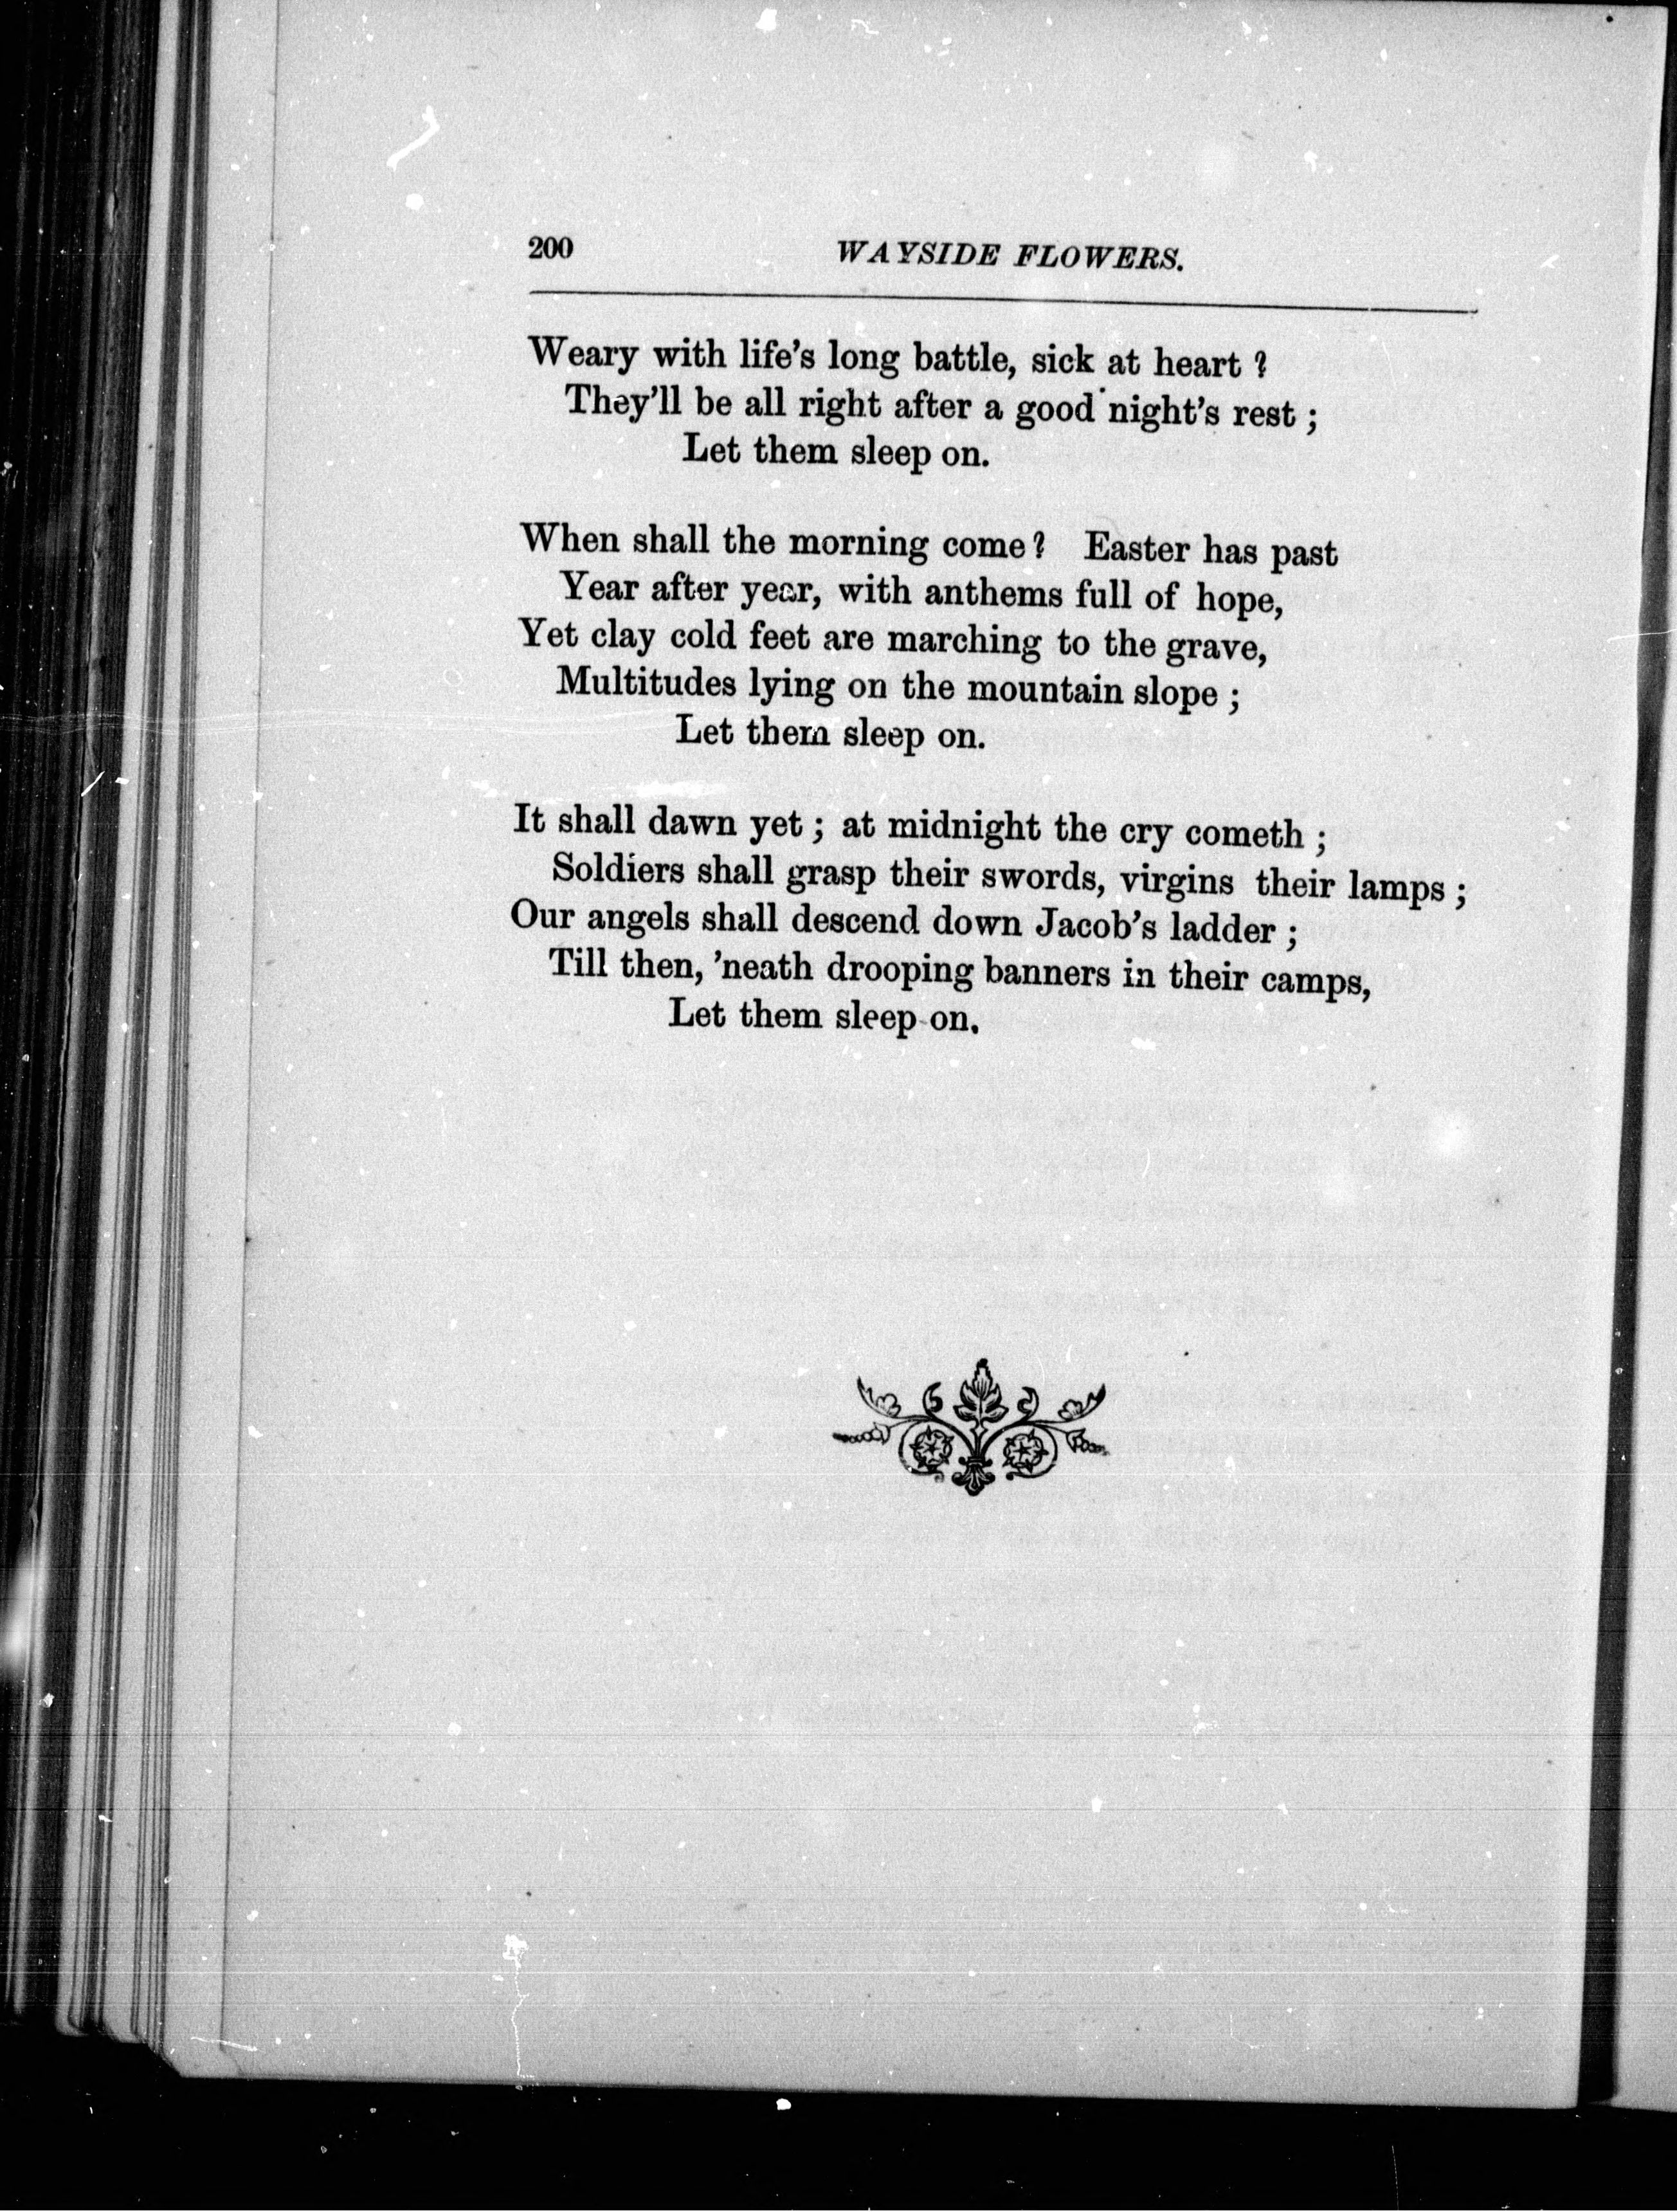 200 WAYSIDE FLOWERS.
Weary with life's long battle, sick at heart ?
They'll be all right after a good night's rest ;
Let them sleep on.
When shall the morning come ? Easter has past
Year after year, with anthems full of hope,
Yet clay cold feet are marching to the grave,
Multitudes lying on the mountain slope ;
Let them sleep on.
It shall dawn yet ; at midnight the cry cometh ;
Soldiers shall grasp their swords, virgins their lamps ;
Our angels shall descend down Jacob's ladder ;
Till then, 'neath drooping banners in their camps,
Let them sleep on.